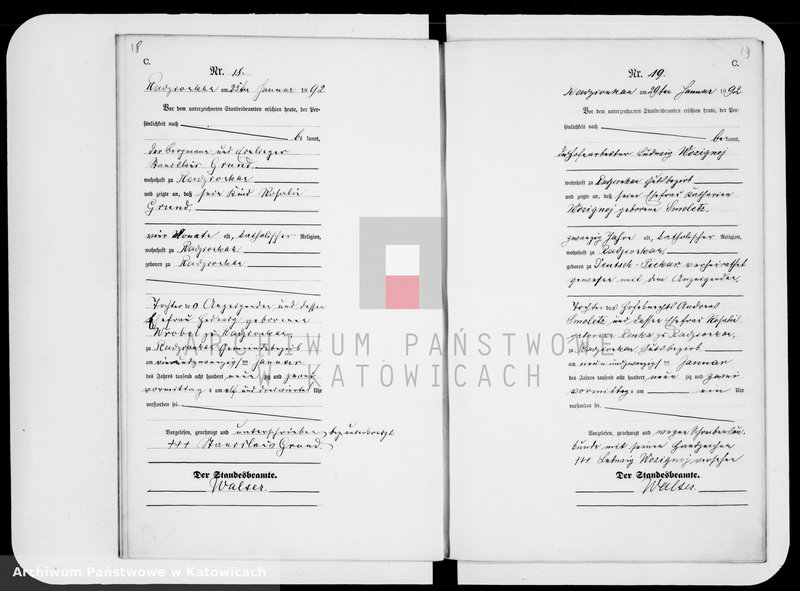 18
C.
Nr. 18.
Radzionkau am 25ten Januar 1892
Vor dem unterzeichneten Standesbeamten erschien heute, der Per-
sönlichkeit nach
be kannt,
der Bergmann und
Stanislaus Grund
wohnhaft zu Radzionkau
und zeigte an, daß sein Kind Rosalie
Grund,
vier Monate alt, katholischer Religion,
wohnhaft zu Radzionkau
geboren zu Radzionkau
Tochter des Anzeigenden und dessen
Ehefrau Hedwig geborenen
Wrobel zu Radzionkau
zu Radzionkau
am vierundzwanzigsten Januar
des Jahres tausend acht hundert neun zig und zwei
vormittags um elf und Uhr
verstorben sei.
Vorgelesen, genehmigt und unterschrieben
+++ Stanislaus Grund
Der Standesbeamte.
Walser.
19
C.
Nr. 19.
Radzionkau am 29ten Januar 1892
Vor dem unterzeichneten Standesbeamten erschien heute, der Per-
sönlichkeit nach
be kannt,
der Hofearbeiter Ludwig Wozignoj
wohnhaft zu Radzionkau Gutsbezirk
und zeigte an, daß seine Ehefrau Katharina
Wozignoj geborene Smoletz,
zwanzig Jahre alt, katholischer Religion,
wohnhaft zu Radzionkau,
geboren zu Deutsch-Piekar verheirathet
gewesen mit dem Anzeigenden,
Tochter des Andreas
Smoletz und dessen Ehefrau Rosalie
geborene zu Radzionkau,
zu Radzionkau Gutsbezirk
am neunundzwanzigsten Januar
des Jahres tausend acht hundert neun zig und zwei
vormittags um ein Uhr
verstorben sei.
Vorgelesen, genehmigt und wegen Schreibensun-
kunde mit seinem Handzeichen
+++ Ludwig Wozignoj versehen
Der Standesbeamte.
Walser.
ARCHIWUM PAŃSTWOWE
W KATOWICACH
Archiwum Państwowe w Katowicach